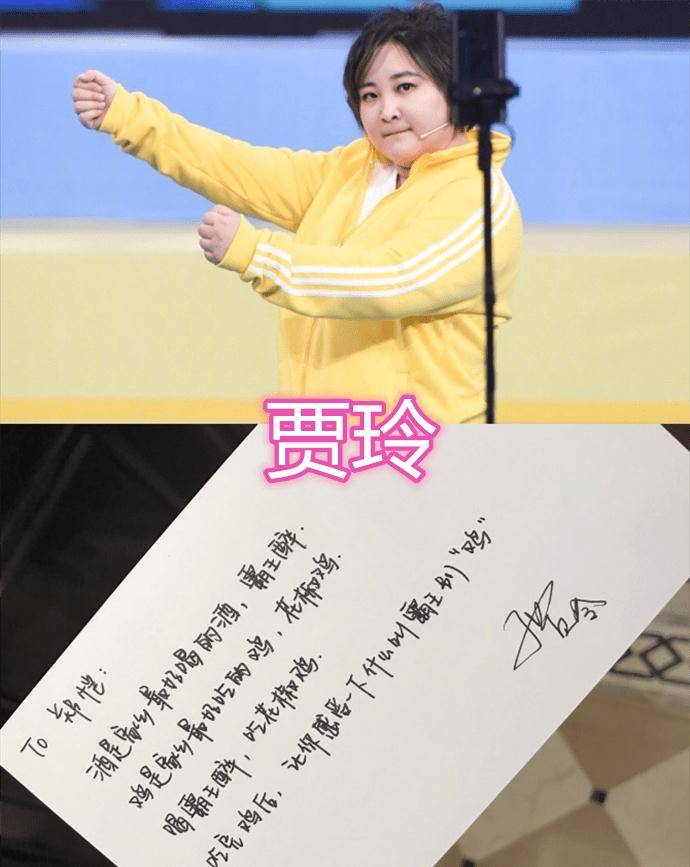 贾玲
To 郑恺:
酒是家乡最好喝的酒，霸王醉.
鸡是家乡最好吃的鸡，花椒鸡.
喝霸王醉，吃花椒鸡.
吃完鸡后，让你感受一下什么叫霸王别“鸡”